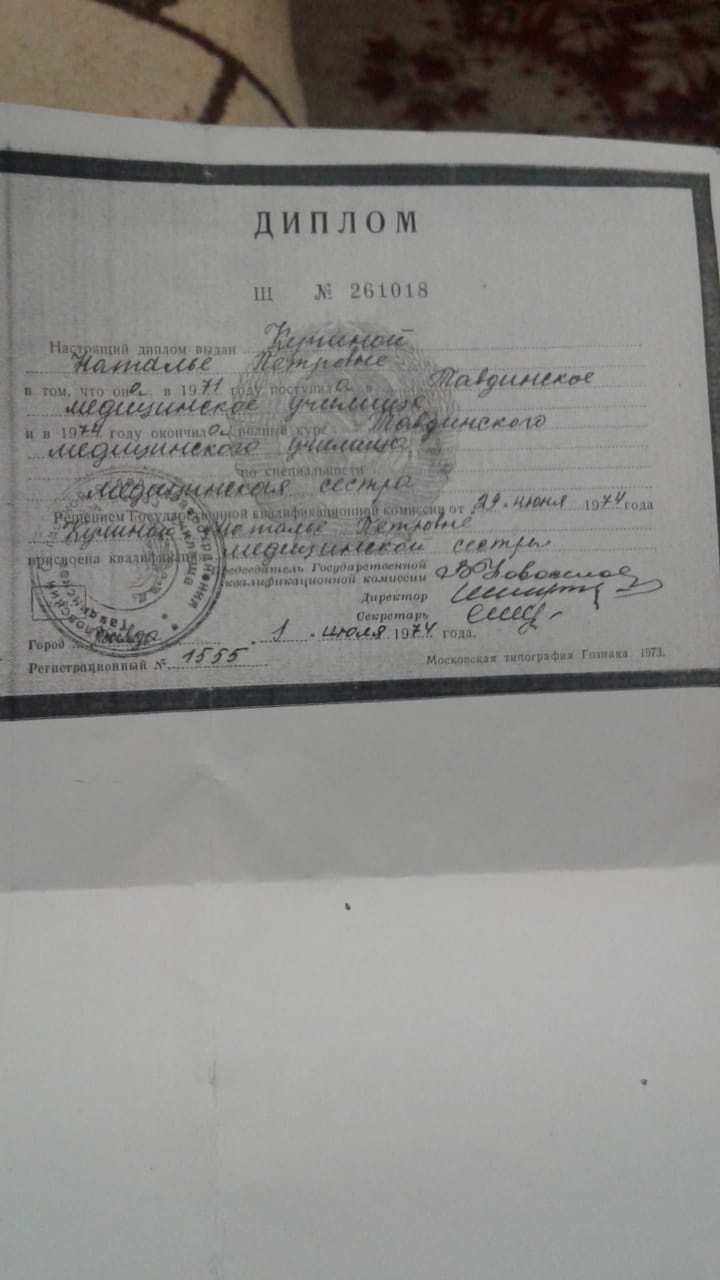 ДИПЛОМ
Щ № 261018
Настоящий диплом выдан Кучиной
Наталье Петровне
в том, что она в 1971 году поступила в Тавдинское
медицинское училище
и в 1974 году окончила полный курс Тавдинского
медицинского училища
по специальности
медицинская сестра
Решением Государственной квалификационной комиссии от 29 июня 1974 года
Кучиной Наталье Петровне
присвоена квалификация медицинской сестры
Председатель Государственной
квалификационной комиссии
Директор
Секретарь
Город Тавда 1 июля 1974 года.
Регистрационный № 1555
Московская типография Гознака. 1973.